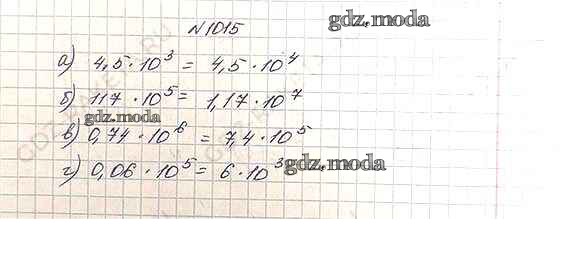 №1015
gdz.moda
а) 4,5 · 10³ = 4,5 · 10⁴
б) 117 · 10⁵ = 1,17 · 10⁷
gdz.moda
в) 0,74 · 10⁶ = 7,4 · 10⁵
г) 0,06 · 10⁵ = 6 · 10³
gdz.moda